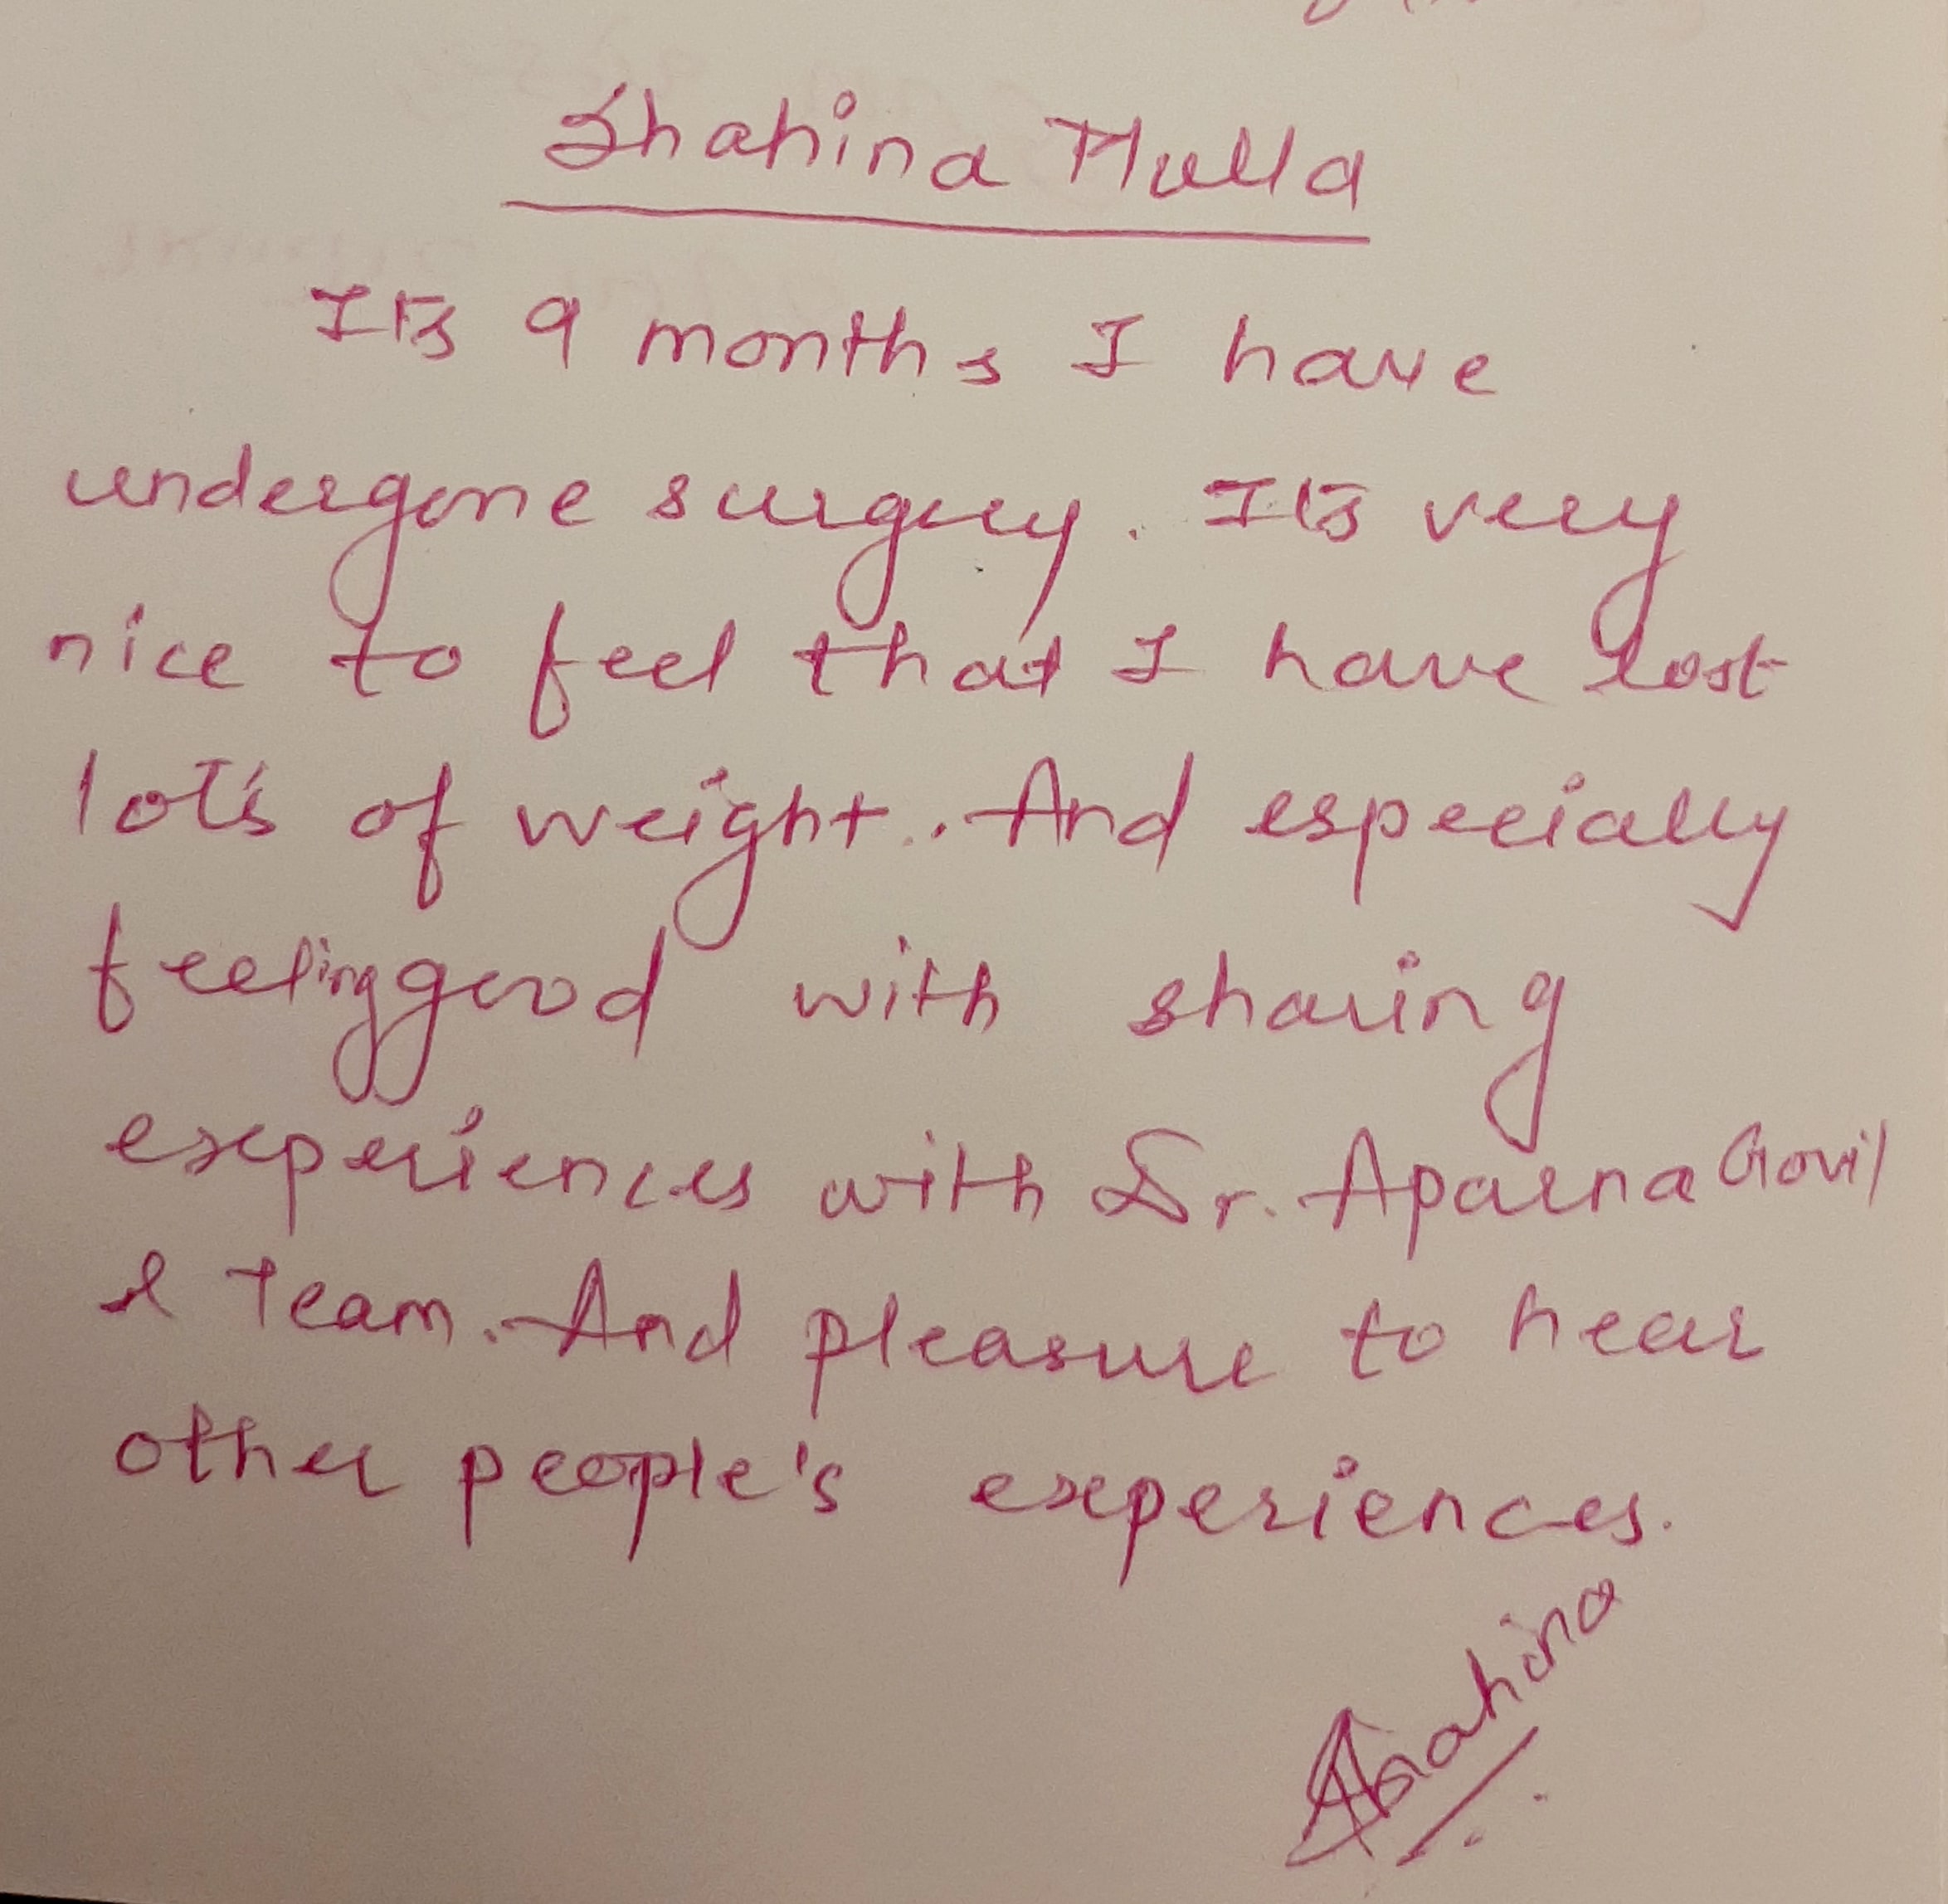 Shahina Mulla
Its 9 months I have
undergone surgery. Its very
nice to feel that I have lost
lot's of weight.. And especially
feeling good with sharing
experiences with Dr. Aparna Govil
& Team. And pleasure to hear
other people's experiences.
Shahina